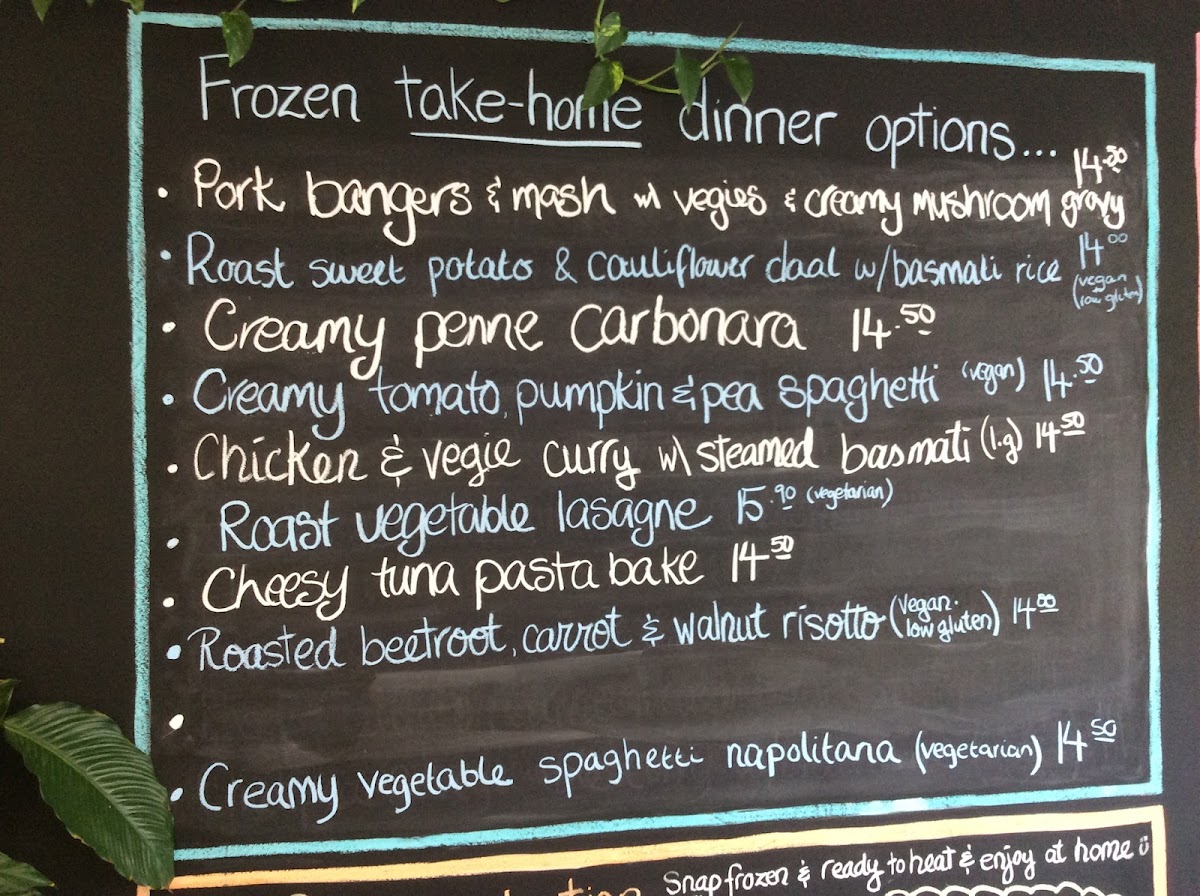 Frozen take-home dinner options...
• Pork bangers & mash w/ vegies & creamy mushroom gravy 14.50
• Roast sweet potato & cauliflower daal w/basmati rice 14.00 (vegan + low gluten)
• Creamy penne carbonara 14.50
• Creamy tomato, pumpkin & pea spaghetti (vegan) 14.50
• Chicken & vegie curry w/ steamed basmati (l.g) 14.50
• Roast vegetable lasagne 15.90 (vegetarian)
• Cheesy tuna pasta bake 14.50
• Roasted beetroot, carrot & walnut risotto (vegan. low gluten) 14.00
•
• Creamy vegetable spaghetti napolitana (vegetarian) 14.50
Snap frozen & ready to heat & enjoy at home